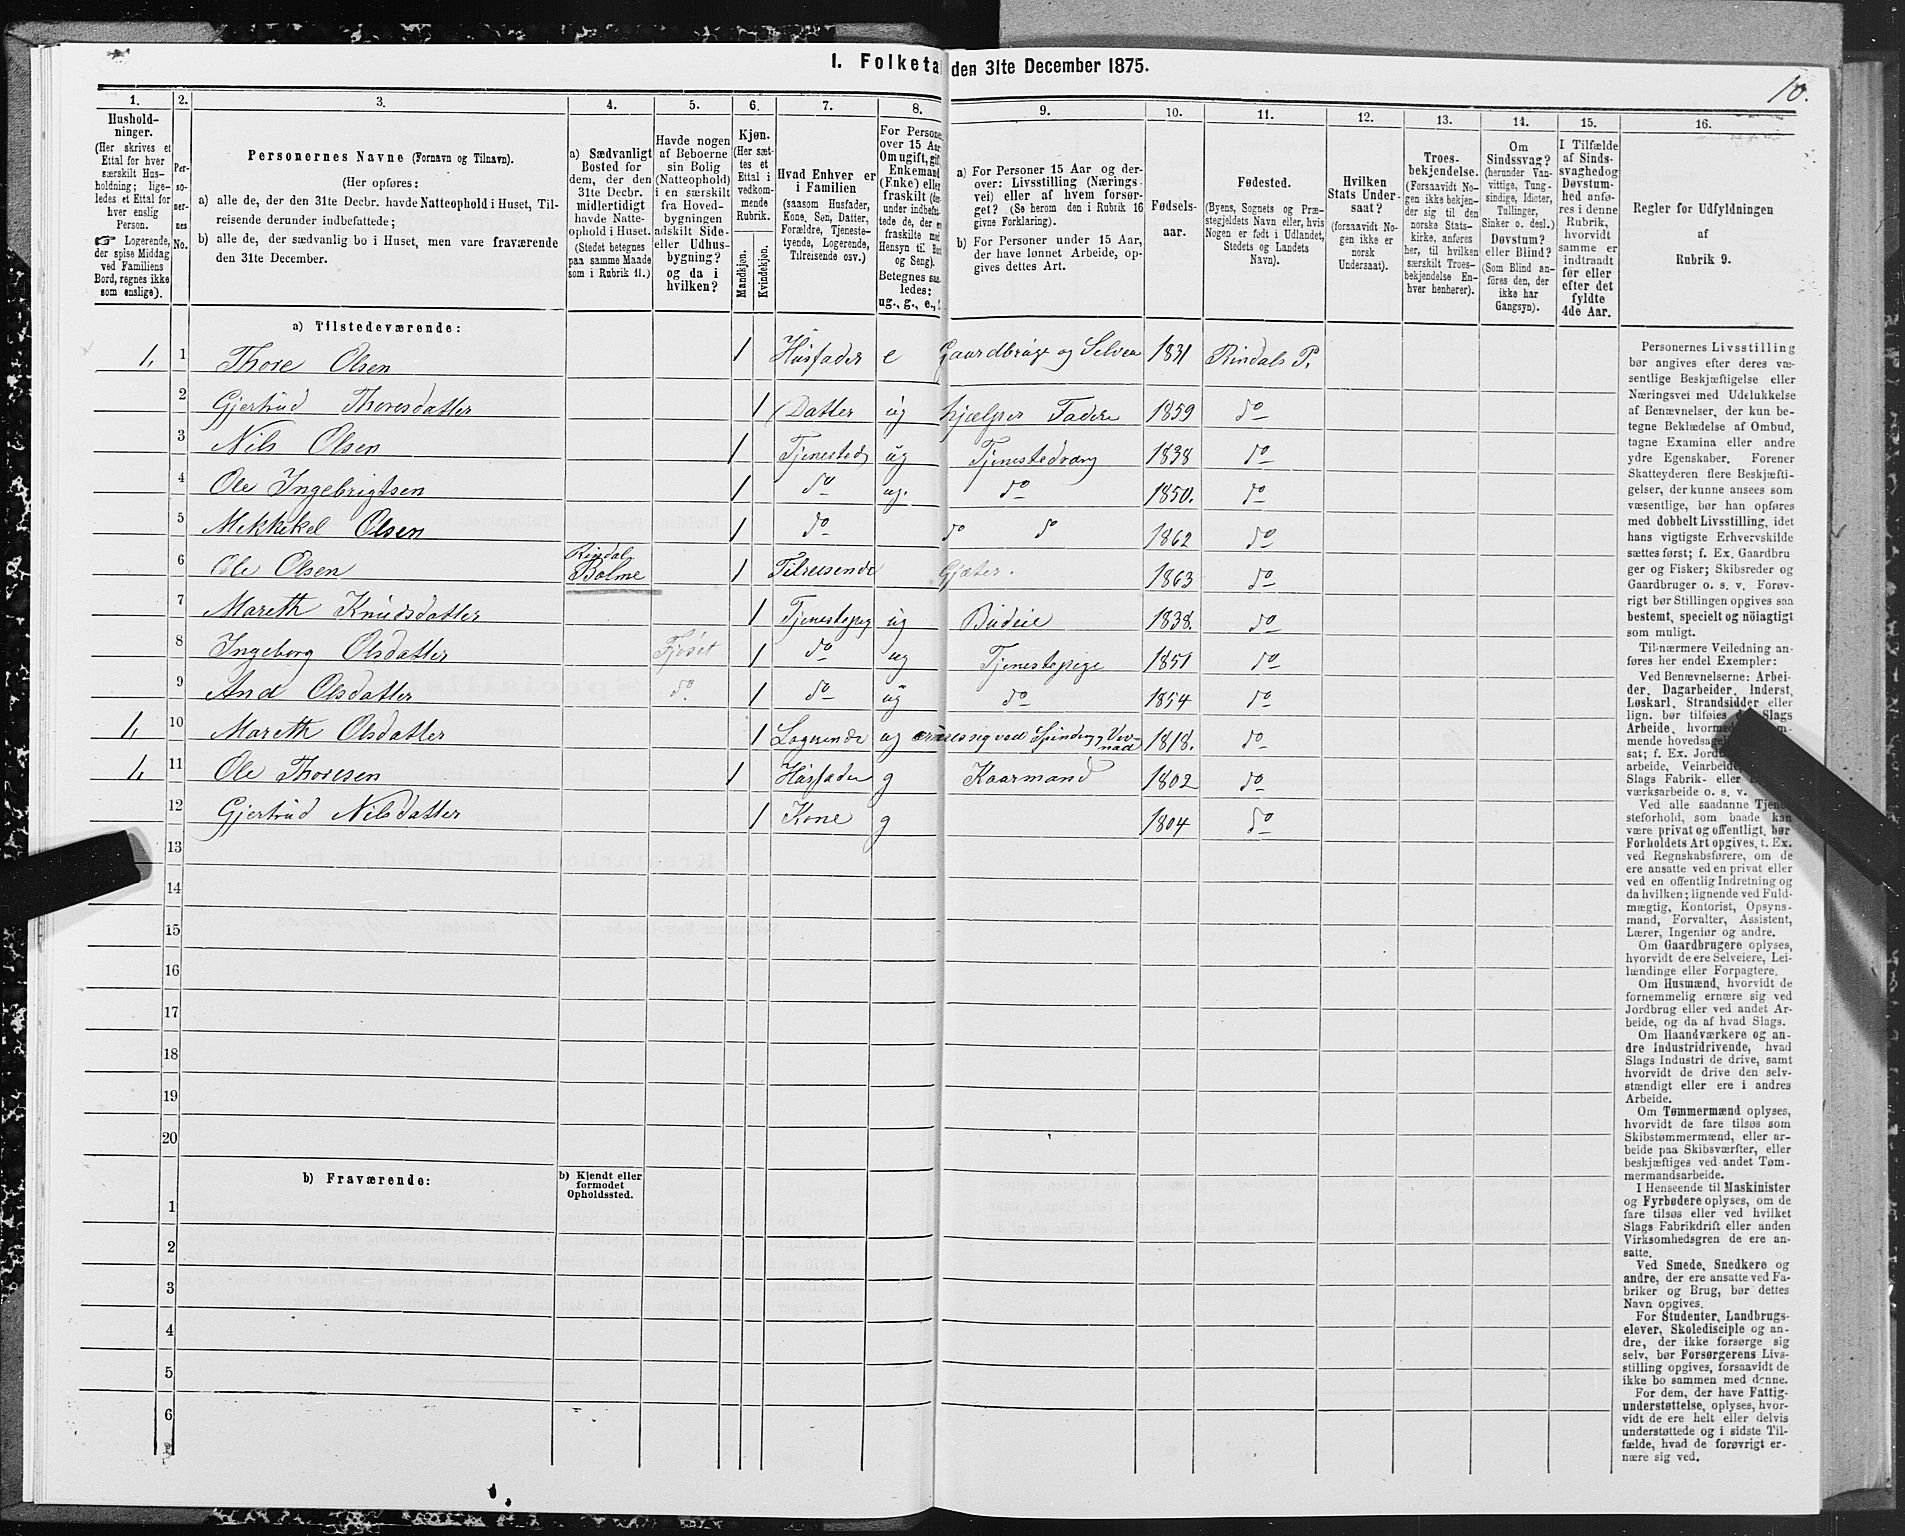 I. Folketa den 31te December 1875.
10.
1. 2. 3. 4. 5. 6. 7. 8. 9. 10. 11. 12. 13. 14. 15. 16.
Hushold-
ninger.
(Her skrives et
Ettal for hver
særskilt Hus-
holdning; lige-
ledes et Ettal for
hver enslig
Person.
☞ Logerende,
der spise Middag
ved Familiens
Bord, regnes ikke
som enslige).
Per-
so-
ner-
nes
No.
Personernes Navne (Fornavn og Tilnavn).
(Her opføres:
a) alle de, der den 31te Decbr. havde Natteophold i Huset, Til-
reisende derunder indbefattede;
b) alle de, der sædvanlig bo i Huset, men vare fraværende
den 31te December.
a) Sædvanligt
Bosted for
dem, der den
31te Decbr.
midlertidigt
havde Natte-
ophold i Huset.
(Stedet betegnes
paa samme Maade
som i Rubrik 11.)
Havde nogen
af Beboerne
sin Bolig
(Natteophold)
i en særskilt
fra Hoved-
bygningen
adskilt Side-
eller Udhus-
bygning?
og da i
hvilken?
Kjøn.
(Her sæt-
tes et
Ettal i
vedkom-
mende
Rubrik.
Mandkjøn.
Kvindekjøn.
Hvad Enhver er
i Familien
(saasom Husfader,
Kone, Søn, Datter,
Forældre, Tjeneste-
tyende, Logerende,
Tilreisende osv.)
For Persone
over 15 Aar
Om ugift, gift
Enkemand
(Enke) elle
fraskilt (der-
under indbefat-
tede de, der e
fraskilte med
Hensyn til Bord
og Seng).
Betegnes saa-
ledes:
ug., g., e.,
a) For Personer 15 Aar og der-
over: Livsstilling (Nærings
vei) eller af hvem forsør-
get? (Se herom den i Rubrik 16
givne Forklaring).
b) For Personer under 15 Aar,
der have lønnet Arbeide, op-
gives dettes Art.
Fødsels-
aar.
Fødested.
(Byens, Sognets og Præ-
stegjeldets Navn eller, hvis
Nogen er født i Udlandet,
Stedets og Landets
Navn).
Hvilken
Stats Under-
saat?
(forsaavidt No-
gen ikke er
norsk
Undersaat).
Troes-
bekjendelse.
(Forsaavidt No-
gen ikke bekjen-
der sig til den
norske Stats-
kirke, anføres
her, til hvilken
særskilt Troes-
bekjendelse En-
hver henhører).
Om
Sindssvag?
(herunder Van-
vittige, Tung-
sindige, Idioter,
Tullinger,
Sinker o. desl.)
Døvstum?
eller Blind?
(Som Blind an-
føres den, der
ikke har
Gangsyn).
I Tilfælde
af Sinds-
svaghed og
Døvstum-
hed anfø-
res i denne
Rubrik,
hvorvidt
samme er
indtraadt
før eller
efter det
fyldte
4de Aar.
Regler for Udfyldningen
af
Rubrik 9.
a) Tilstedeværende:
1, 1 Thore Olsen 1 Husfader e Gaardbruge og Selvei 1831 Rindals P.
2 Gjertrud Thoresdatter 1 Datter ug hjælper Fadere 1859 do
3 Nils Olsen 1 Tjenested ug Tjenestedræng 1838 do
4 Ole Ingebrigtsen 1 do ug. do 1850. do
5 Mekkekel Olsen 1 do do do 1862 do
6 Ole Olsen Rindal Bolme 1 Tilreisende Gjæter. 1863 do
7 Mareth Knudsdatter 1 Tjenestepig ug Budeie 1838. do
8 Ingeborg Olsdatter Fjøset 1 do ug Tjenestepige 1851 do
9 And Olsdatter do. 1 do ug do 1854 do
1, 10 Mareth Olsdatter 1 Logerende ug ved Spinding 1818. do
1, 11 Ole Thoresen 1 Husfader g Kaarmand 1802 do
12 Gjertrud Nilsdatter 1 Kone g 1804 do
13
14
15
16
17
18
19
20
b) Fraværende:
b) Kjendt eller
formodet
Opholdssted.
1
2
3
4
5
6
Personernes Livsstilling
bør angives efter deres væ-
sentlige Beskjæftigelse eller
Næringsvei med Udelukkelse
af Benævnelser, der kun be-
tegne Beklædelse af Ombud,
tagne Examina eller andre
ydre Egenskaber. Forener
Skatteyderen flere Beskjæfti-
gelser, der kunne ansees som
væsentlige, bør han opføres
med dobbelt Livsstilling, idet
hans vigtigste Erhvervskilde
sættes først; f. Ex. Gaardbru-
ger og Fisker; Skibsreder og
Gaardbruger o. s. v. Forøv-
rigt bør Stillingen opgives saa
bestemt, specielt og nöiagtigt
som muligt.
Til nærmere Veiledning an-
føres her endel Exempler:
Ved Benævnelserne: Arbei-
der, Dagarbeider, Inderst,
Løskarl, Strandsidder eller
lign. bør tilføies Slags
Arbeide, hvormed
mende hovedsagel
sat; f. Ex. Jord
arbeide, Veiarbeide
Slags Fabrik- eller
værksarbeide o. s. v.
Ved alle saadanne Tjene-
steforhold, som baade kan
være privat og offentligt, bør
Forholdets Art opgives, f. Ex.
ved Regnskabsførere, om de
ere ansatte ved en privat eller
ved en offentlig Indretning og
da hvilken; lignende ved Fuld-
mægtig, Kontorist, Opsyns-
mand, Forvalter, Assistent,
Lærer, Ingeniør og andre.
Om Gaardbrugere oplyses,
hvorvidt de ere Selveiere, Lei-
lændinge eller Forpagtere.
Om Husmænd, hvorvidt de
fornemmelig ernære sig ved
Jordbrug eller ved andet Ar-
beide, og da af hvad Slags.
Om Haandværkere og an-
dre Industridrivende, hvad
Slags Industri de drive, samt
hvorvidt de drive den selv-
stændigt eller ere i andres
Arbeide.
Om Tømmermænd oplyses,
hvorvidt de fare tilsøs som
Skibstømmermænd, eller ar-
beide paa Skibsværfter, eller
beskjæftiges ved andet Tøm-
mermandsarbeide.
I Henseende til Maskinister
og Fyrbødere oplyses, om de
fare tilsøs eller ved hvilket
Slags Fabrikdrift eller anden
Virksomhedsgren de ere an-
satte.
Ved Smede, Snedkere og
andre, der ere ansatte ved Fa-
briker og Brug, bør dettes
Navn opgives.
For Studenter, Landbrugs-
elever, Skoledisciple og an-
dre, der ikke forsørge sig
selv, bør Forsørgerens Livs-
stilling opgives, forsaavidt de
ikke bo sammen med denne.
For dem, der have Fattig-
understøttelse, oplyses, hvor-
vidt de ere helt eller delvis
understøttede og i sidste Til-
fælde, hvad de forøvrigt er-
nære sig ved.